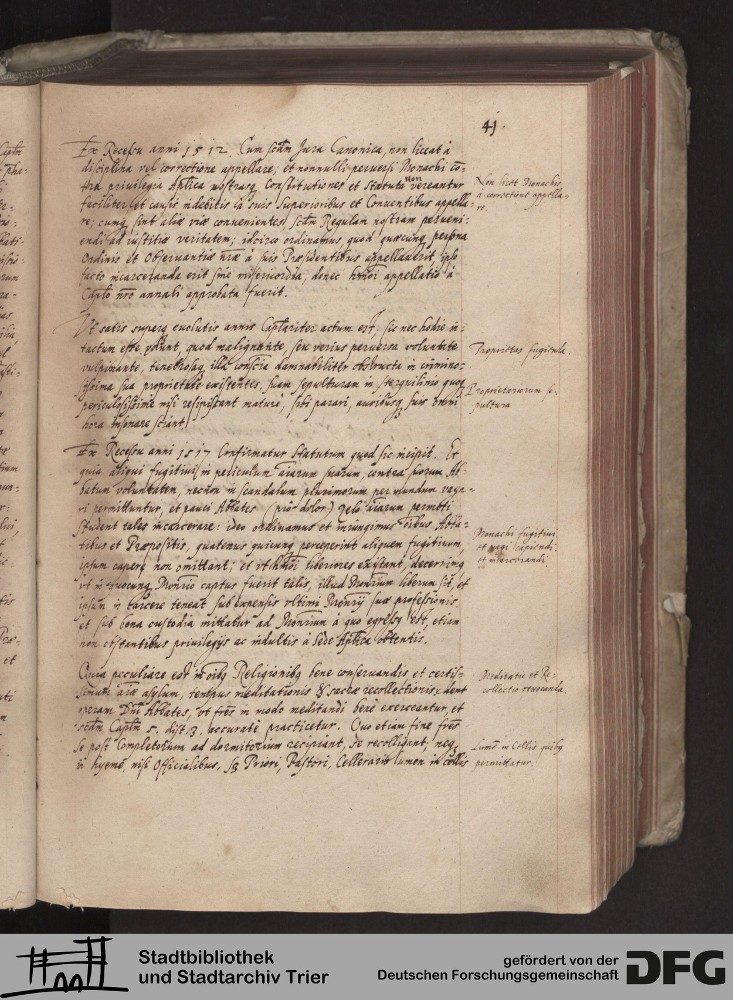 41.
Ex Recessu anni 1512. Cum scdm Jura Canonica, non liceat à
disciplina vel correctione appellare; et nonnulli peruersi Monachi co-
tra privilegia Aptica nostraq, Constitutiones et Statuta Non vereantur
faciliter et causis indebitis à suis Superioribus et Conventibus appella-
re; cumq, sint aliæ viæ convenientes scdm Regulam nostram perueni-
endi ad iustitiæ veritatem; idcirco ordinamus, quod quæcunq, persona
Ordinis et Observantiæ nræ à suis Præsidentibus appellauerit, ipso
facto incarceranda erit sine misericordia, donec hmoi appellatio à
Caplo nro annali approbata fuerit.
Non licet Monachis
à correctione appella-
re.
Ut satis superq euolutis annis Caplariter actum est, sic nec hodie in-
tactum esse volunt, quod malignante, seu verius peruersa voluntate
vulpinante, tenebrosaq, illa conscia damnabiliter obstructa in crimino-
sissima sua proprietate existentes, suam sepulturam in sterquilinio quoq
periculosissime nisi resipiscant mature, sibi parari, auribusq suis omni
hora insonare sciant.
Proprietas fugienda.
Proprietariorum se-
pultura
Ex Recessu anni 1517 Confirmatur Statutum quod sic incipit. Et
quia aliqui fugitivi in periculum aiarum suarum, contra suorum Ab-
batum voluntatem, necnon in scandalum plurimorum per mundum vaga-
ri permittuntur, et pauci Abbates (proh dolor) zelo aiarum permoti
student tales incarcerare: ideo ordinamus et iniungimus oibus Abba-
tibus et Præpositis, quatenus quicunq, perceperint aliquem fugitivum,
ipsum capere non omittant; et ut hmoi liberiores existant, decernimus
ut in quocunq, Monrio captus fuerit talis, illud Monrium liberum sit, et
ipsum in carcere teneat sub expensis ultimi Monrij suæ professionis,
et sub bona custodia mittatur ad Monrium à quo egressus est, etiam
non obstantibus privilegijs ac indultis à Sede Aplica obtentis.
Monachi fugitivi
et vagi capiendi
et incarcerandi.
Quia peculiare est in oibus Religionibus bene conseruandis et certis-
simum aiæ asylum, tenthus meditationis & sacræ recollectionis; dent
operam Dni Abbates, ut fres in modo meditandi bene exerceantur, et
scdm Caplm 5. dist. 3. accurate practicetur. Quo etiam fine fres
se post Completorium ad dormitorium recipiant, se recolligant, neq
in hyeme, nisi Officialibus, sc Priori, Pastori, Cellerario lumen in cellis
Meditatio et Re-
collectio renouanda.
Lumen in Cellis quibus
permittatur.
Stadtbibliothek
und Stadtarchiv Trier
gefördert von der
Deutschen Forschungsgemeinschaft
DFG